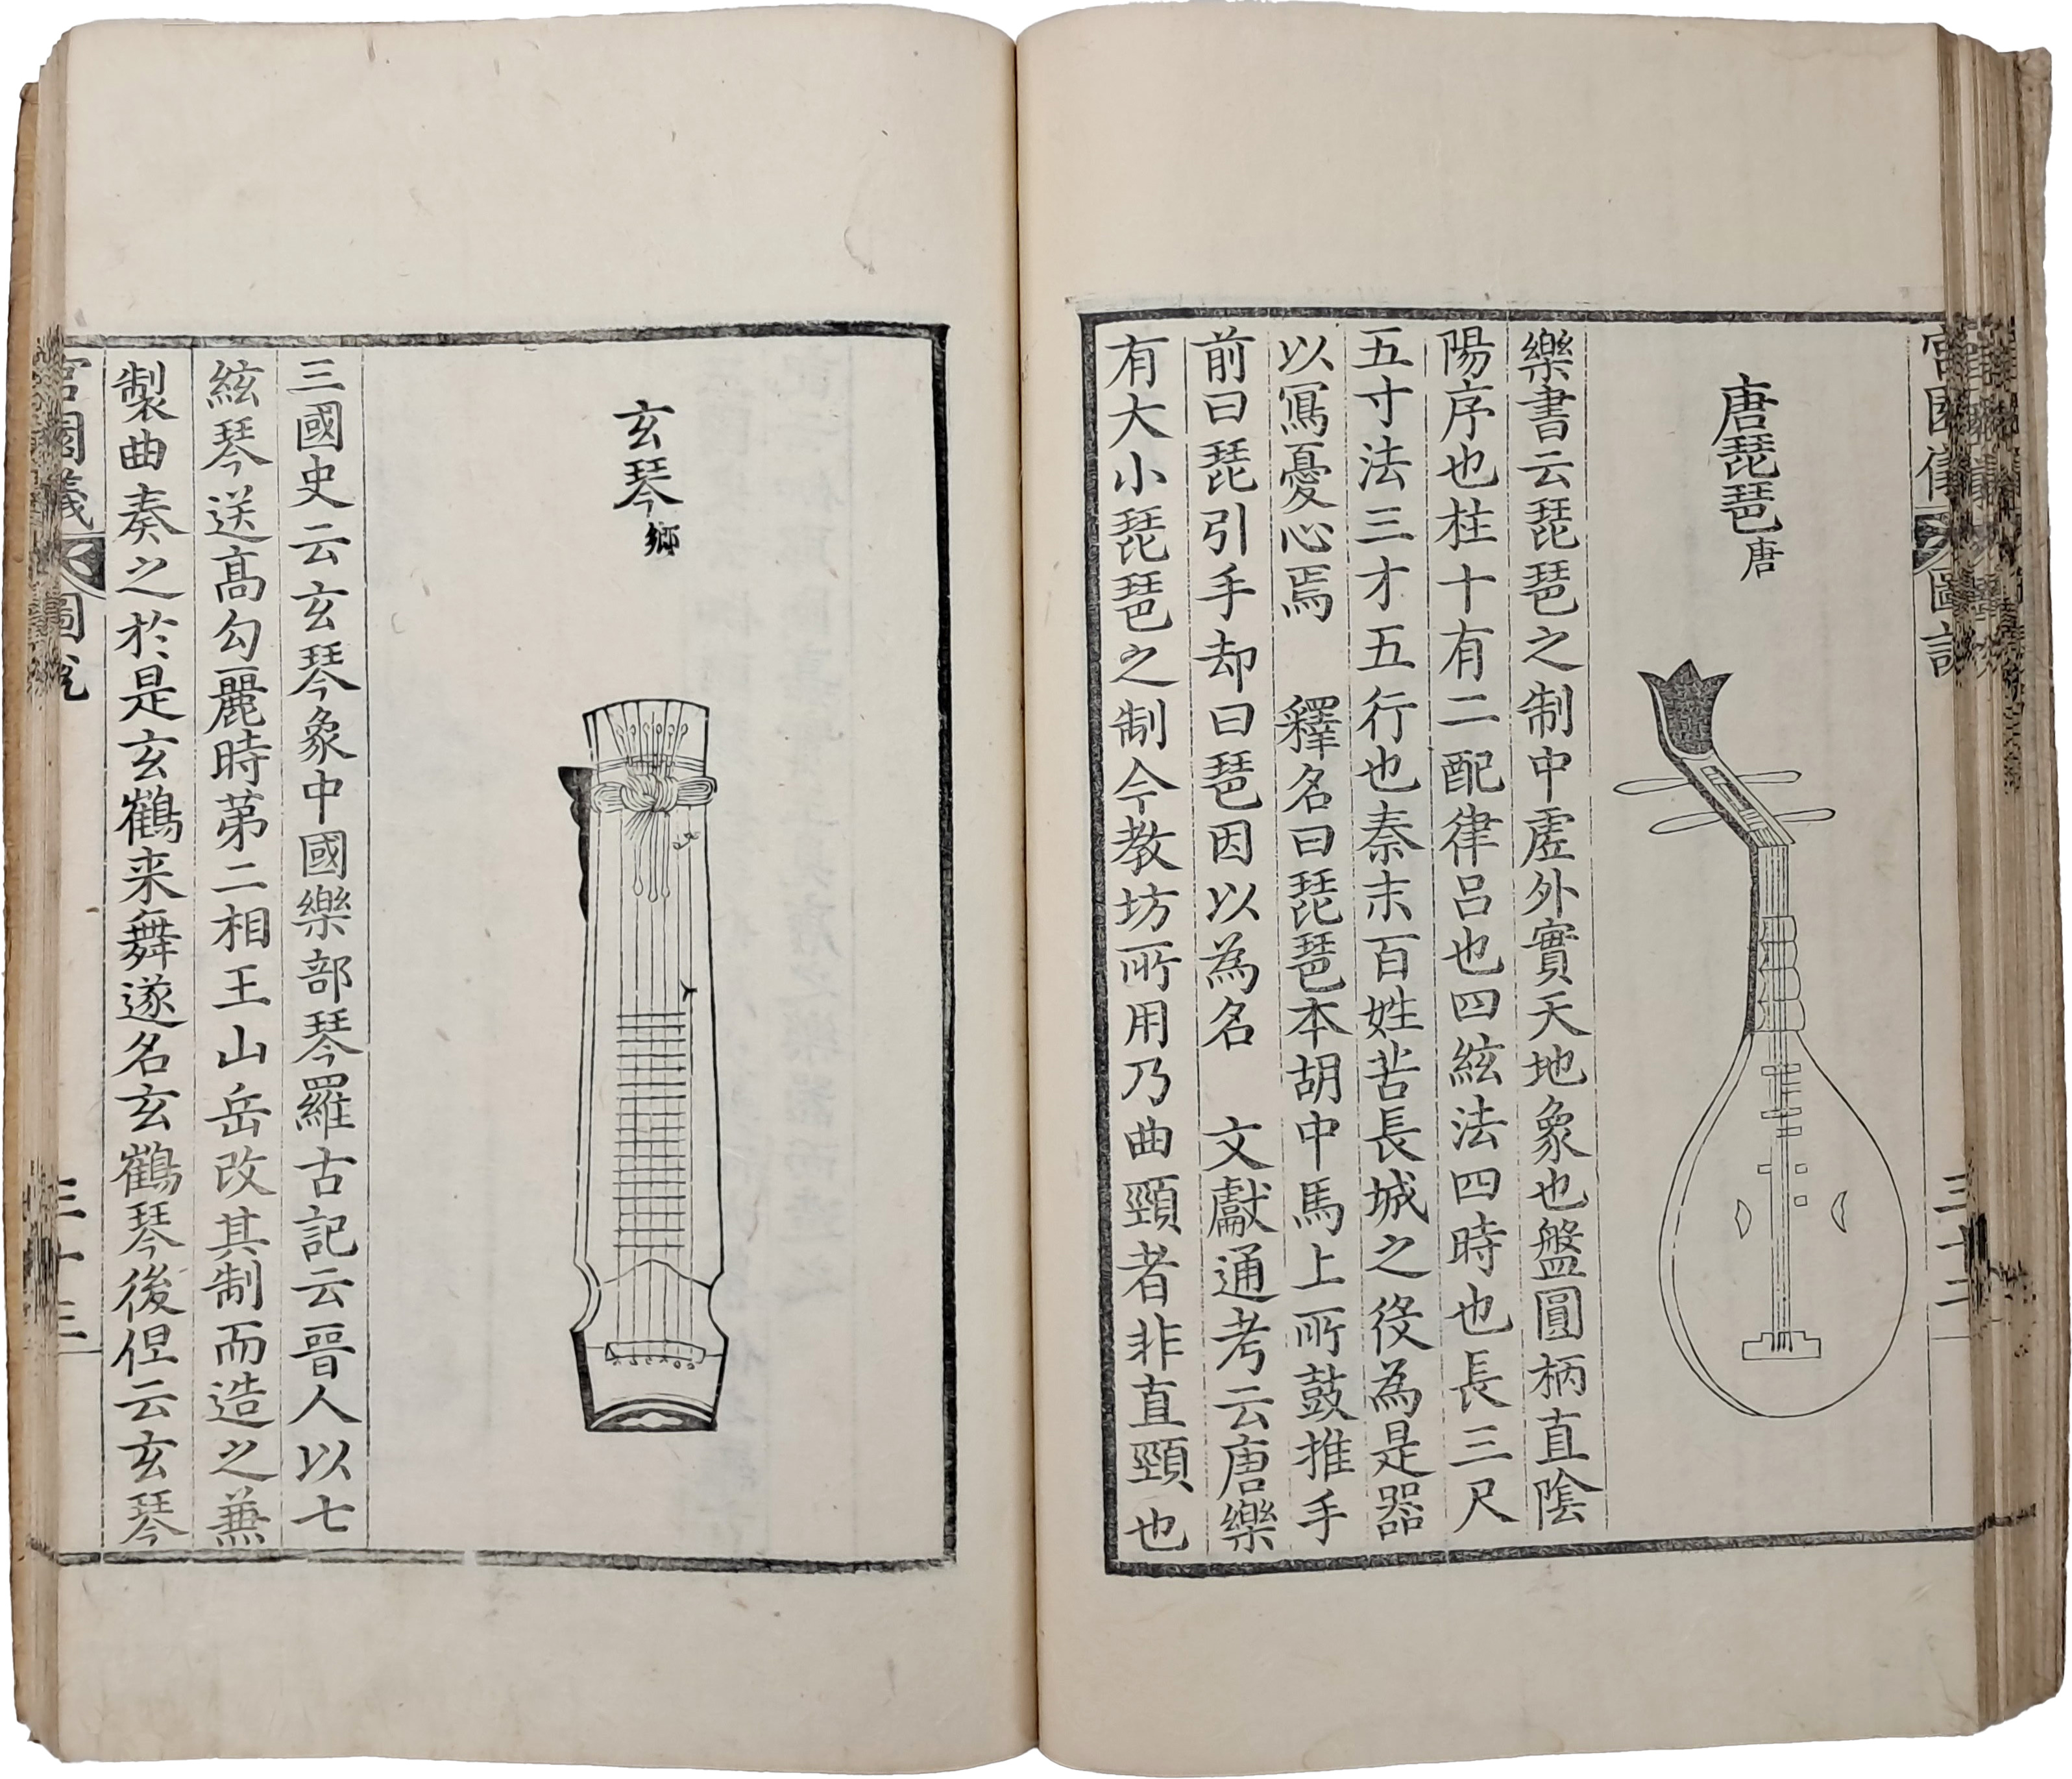 唐琵琶唐
樂書云琵琶之制中虛外實天地象也盤圓柄直陰
陽序也柱十有二配律呂也四絃法四時也長三尺
五寸法三才五行也秦末百姓苦長城之役為是器
以寫憂心焉 釋名曰琵琶本胡中馬上所鼓推手
前曰琵引手却曰琶因以為名 文獻通考云唐樂
有大小琵琶之制今教坊所用乃曲頸者非直頸也
玄琴鄉
三國史云玄琴象中國樂部琴羅古記云晉人以七
絃琴送高勾麗時苐二相王山岳改其制而造之兼
製曲奏之於是玄鶴来舞遂名玄鶴琴後但云玄琴
宮園儀 圖說
三十三